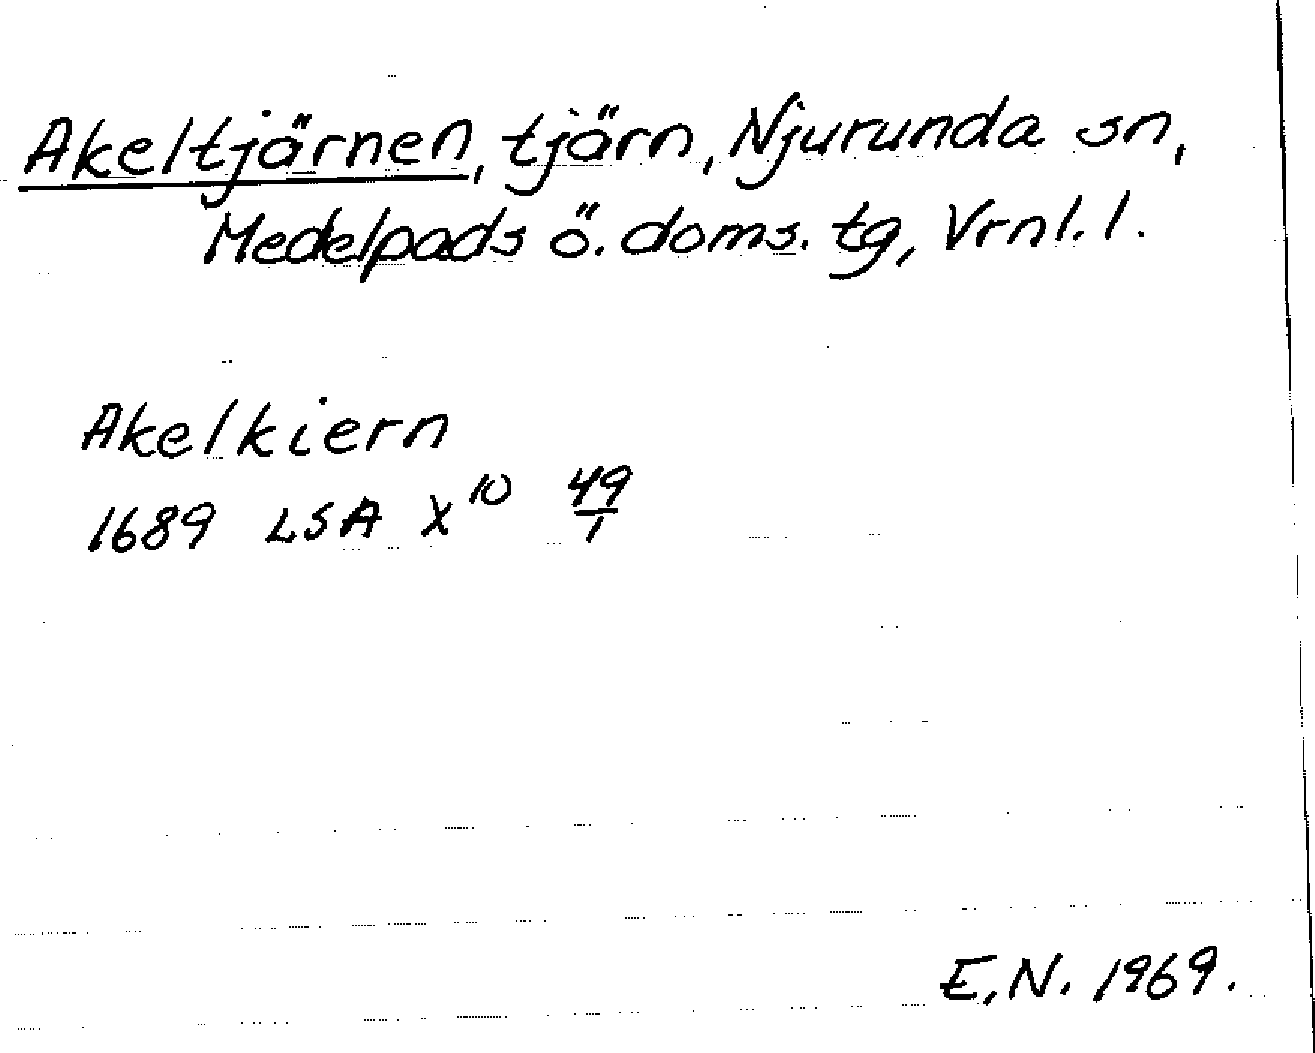 Akeltjärnen, tjärn, Njurunda sn,
Medelpads ö. doms. tg, Vrnl. l.
Akelkiern
1689 LSA X¹⁰ 49/1
E.N. 1969.